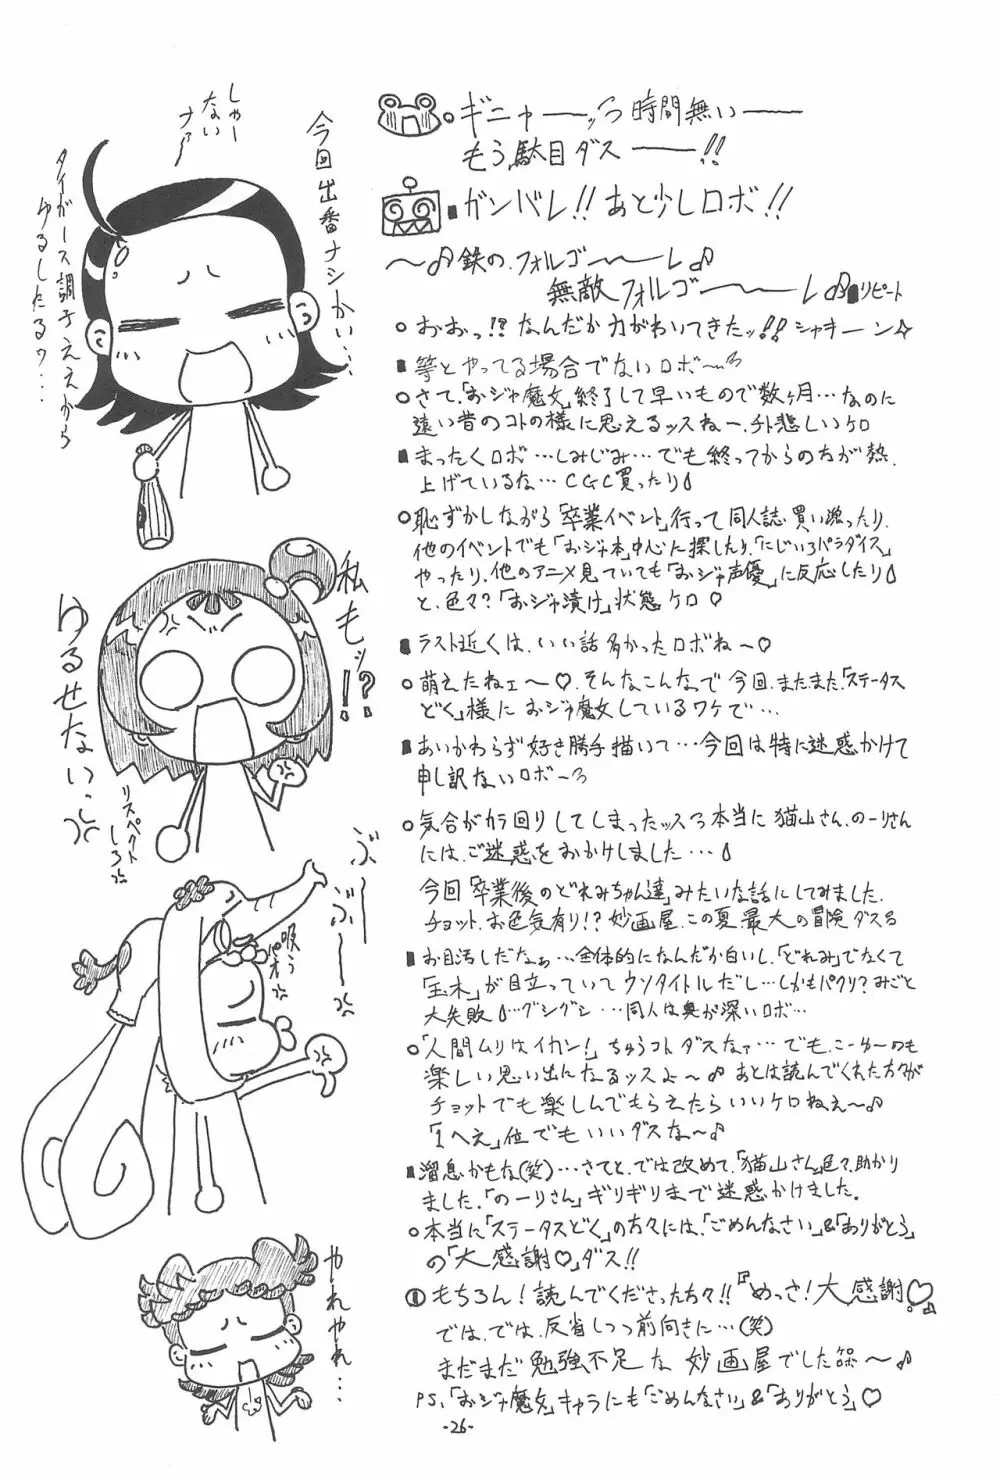 ギニャーーッう時間無いーー
もう駄目ダスーー!!
ガンバレ!!あと少しロボ!!
〜♪鉄の.フォルゴ〜〜レ♪
無敵フォルゴ〜〜レ♪リピート
おおっ!?なんだか力がわいてきたッ!!シャキーン☆
等とやってる場合でないロボ〜
さて、「おジャ魔女」終了して早いもので数ヶ月…なのに
遠い昔のコトの様に思えるッスねー、チト悲しいケロ
まったくロボ…しみじみ…でも終ってからの方が熱.
上げているな…CGC買ったり
恥ずかしながら「卒業イベント」行って同人誌.買い漁ったり.
他のイベントでも「おジャ本」中心に探したり、「にじいろパラダイス」
やったり.他のアニメ見ていても「おジャ声優」に反応したり
と、色々?「おジャ漬け」状態ケロ♡
ラスト近くは、いい話多かったロボね〜♡
萌えたねェ〜♡.そんなこんなで今回.またまた「ステータス
どく」様におジャ魔女しているワケで…
あいかわらず好き勝手描いて…今回は特に迷惑かけて
申し訳ないロボ〜
気合がカラ回りしてしまったッス 本当に猫山さん、のーりさん
には、ご迷惑をおかけしました…
今回「卒業後のどれみちゃん達」みたいな話にしてみました.
チョット.お色気有り!?妙画屋.この夏.最大の冒険ダス
お目汚しだなぁ…全体的になんだか白いし、「どれみ」でなくて
「玉木」が目立っていてウソタイトルだし…しかもパクリ?みごと
大失敗…グシグシ…同人は奥が深いロボ…
「人間ムリはイカン!」ちゅうコトダスなァ…でも、こーゆーのも
楽しい思い出になるッスよ〜♪あとは読んでくれた方々が
チョットでも楽しんでもらえたらいいケロねえ〜♪
「1へえ」位でもいいダスな〜♪
溜息かもな(笑)…さてと、では改めて、「猫山さん」色々.助かり
ました、「のーりさん」ギリギリまで迷惑かけました。
本当に「ステータスどく」の方々には、「ごめんなさい」&「ありがとう」
の「大感謝♡」ダス!!
もちろん!読んでくださった方々!!『めっさ!大感謝♡
では、では、反省しつつ前向きに…(笑)
まだまだ勉強不足な妙画屋でした
P.S、「おジャ魔女」キャラにも「ごめんなさい」&「ありがとう」♡
-26-
今回出番ナシかい…
しゃー
ない
ナァ〜
タイガース調子ええから
ゆるしたるワ…
私もッ!?
ゆるせないっ
リスペクト
しろ
ぶ〜
ぶ〜
吸う
パオ
やれやれ…